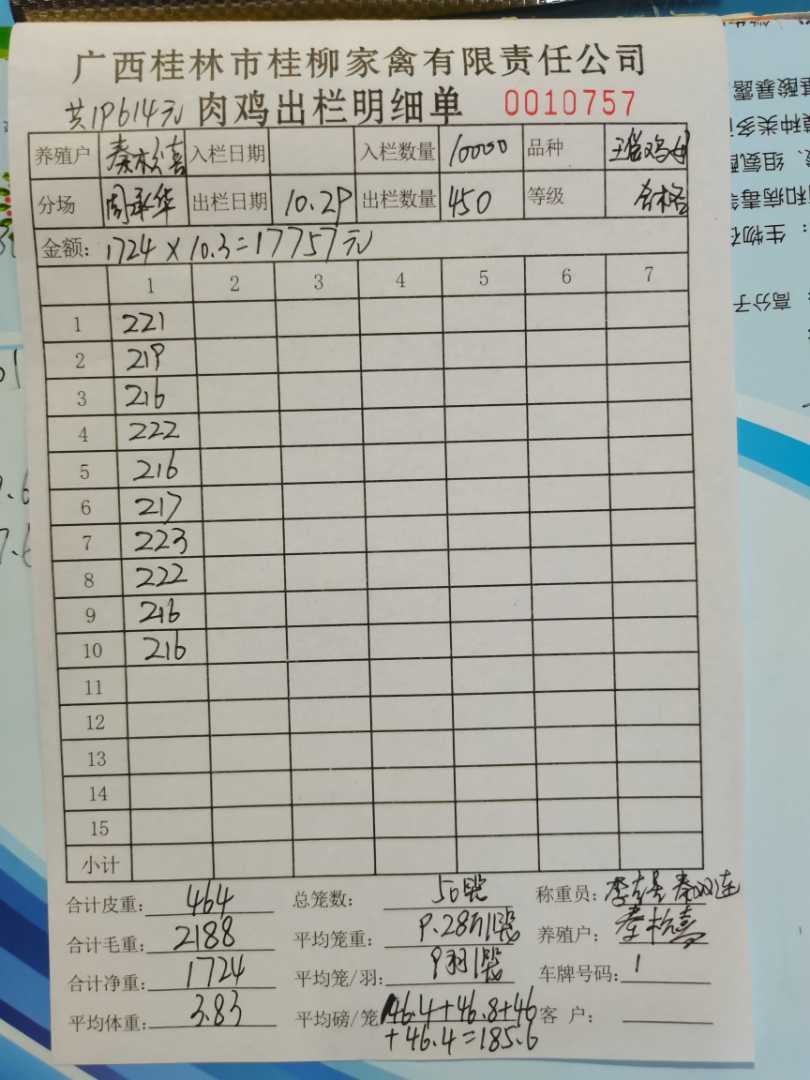 广西桂林市桂柳家禽有限责任公司
共19614元 肉鸡出栏明细单 0010757
养殖户 秦松喜 入栏日期 入栏数量 10000 品种
分场 周承华 出栏日期 10.29 出栏数量 450 等级 合格
金额: 1724 × 10.3 = 17757元
1 2 3 4 5 6 7
1 221
2 219
3 216
4 222
5 216
6 217
7 223
8 222
9 216
10 216
11
12
13
14
15
小计
合计皮重: 464 总笼数: 50 称重员:
合计毛重: 2188 平均笼重: 9.28 养殖户: 秦松喜
合计净重: 1724 平均笼/羽: 9羽 车牌号码:
平均体重: 3.83 平均磅/笼 46.4+46.8+46 客 户:
+46.4=185.6